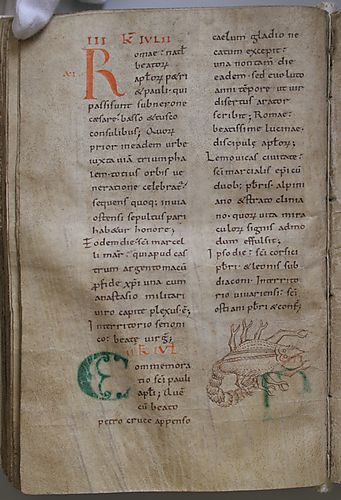 III K IULII
XVI
Romae: natł
beatoꝝ
apłoꝝ petri
& pauli. qui
passi sunt sub nerone
caesare. basso & tusco
consulibus; Quoꝝ
prior in eadem urbe
iuxta viā triumpha
lem. totius orbis ue
neratione celebrat̄.
sequens quoq; in uia
ostensi sepultus pari
hab&ur honore;
Eodem die: sc̄i marcel
li mar̄. qui apud cas
trum argentomacū
ꝓ fide xp̄i una cum
anastasio militari
uiro capite plexus ē;
In territorio senoni
co: beate uirḡ;
II K IVL
Commemora
tio sc̄i pauli
apłi; Que
cū beato
petro cruce appenso
caelum gladio ne
catum excepit:
una non tam die
eadem. sed euoluto
anni tēpore ut uir
disertus arator
scribit; Romae:
beatissime lucinae.
discipulę apłoꝝ;
Lemouicas ciuitate:
sc̄i marcialis ep̄i cū
duob; p̄bris. alpini
ano & stratocliniano
no. quoꝝ uita mira
culoꝝ signis admo
dum effulsit;
Ipso die: sc̄i
p̄bri. & leonis sub
diaconi. In territo
rio uiuariensi: sc̄i
ostiani p̄bri & conf;